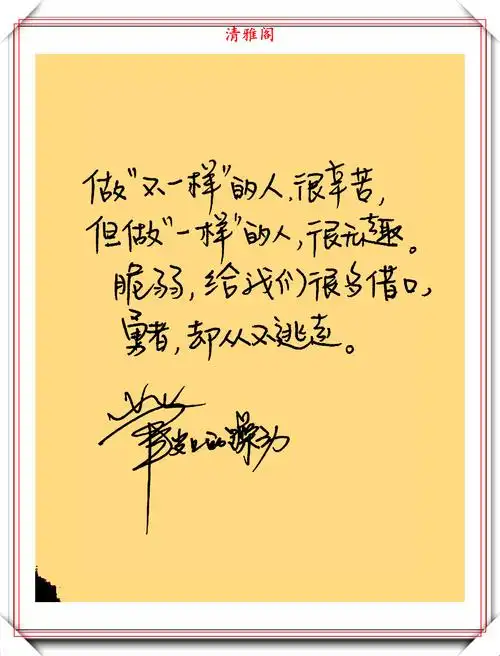 清雅阁
做"不一样"的人,很辛苦,
但做"一样"的人,很无趣。
脆弱,给我们很多借口,
勇者,却从不逃走。